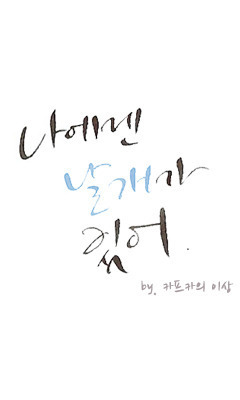 나에겐
날개가
있어.
by. 카프카의 이상